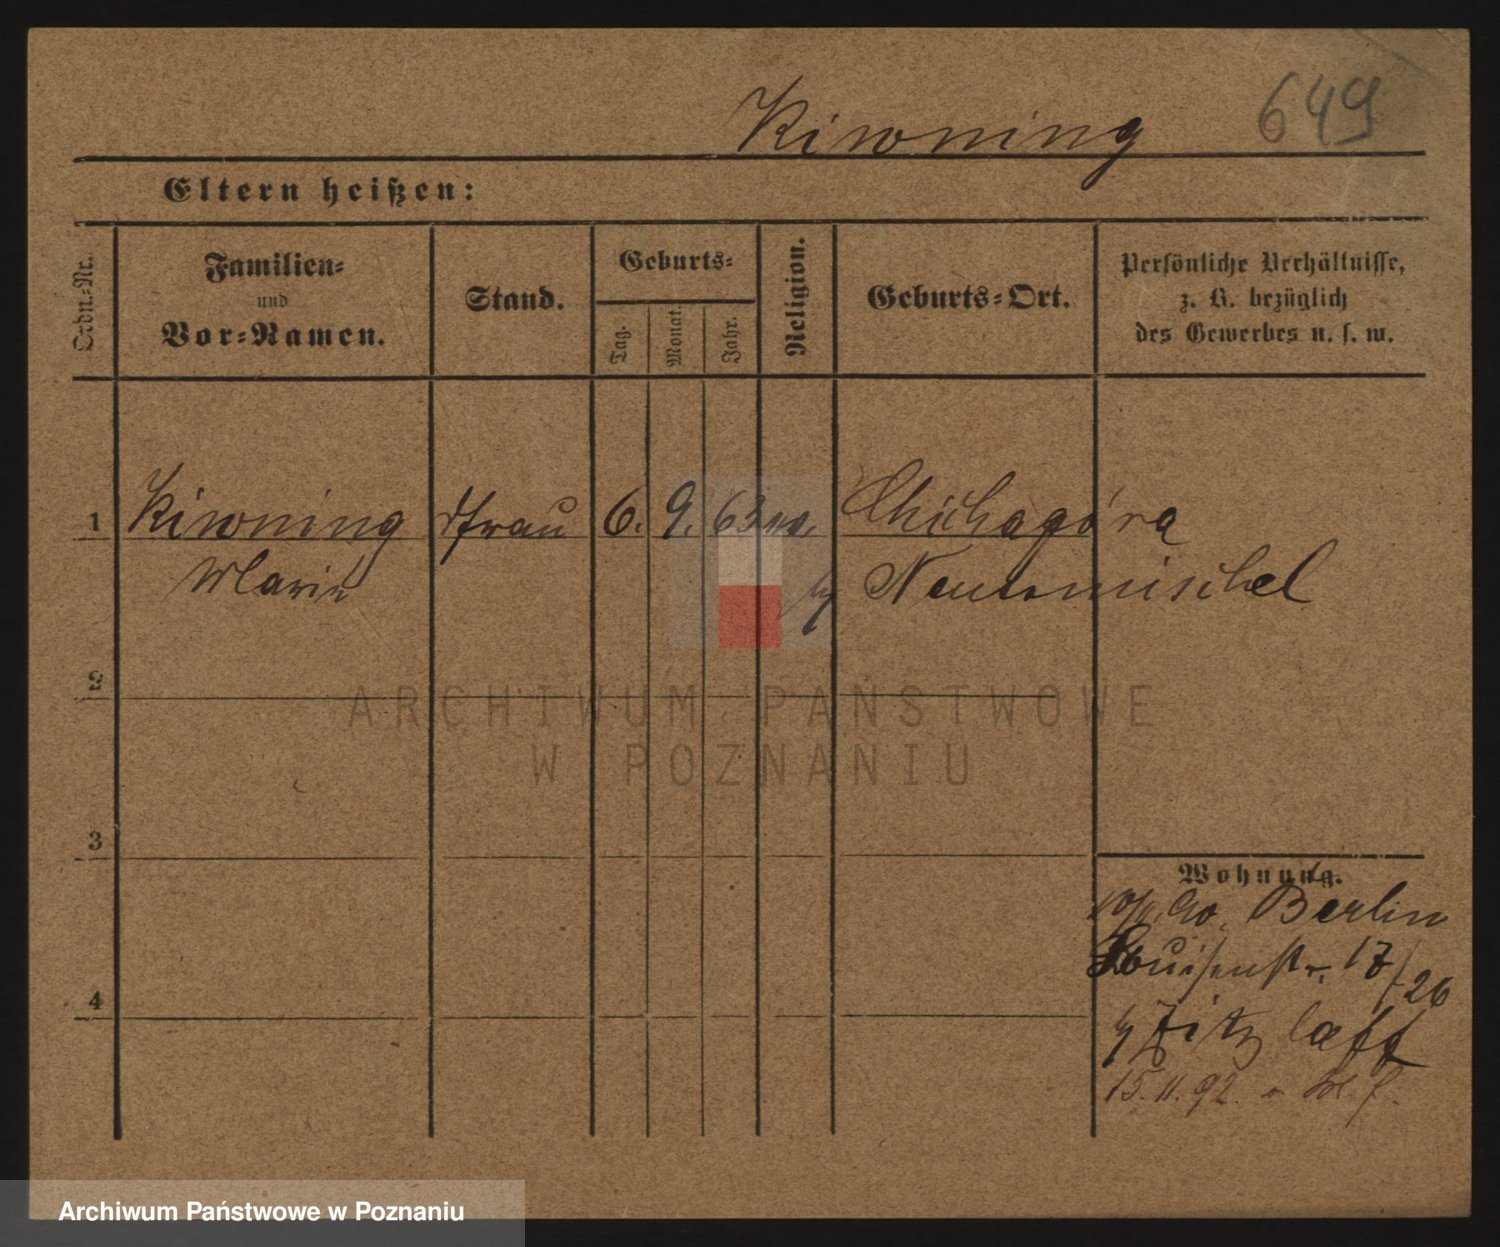 Kiwning 649
Eltern heißen:
Ordn.-Nr.
Familien-
und
Vor-Namen.
Stand.
Geburts-
Tag.
Monat.
Jahr.
Religion.
Geburts-Ort.
Persönliche Verhältnisse,
z. B. bezüglich
des Gewerbes u. s. w.
1 Kiwning Frau 6. 9. 63 Chichagóra
Marie Neutomischel
2
ARCHIWUM PAŃSTWOWE
W POZNANIU
3
Wohnung.
90. Berlin
Louisenstr. 17/
26
Zitzlaff
4
15.11.92.
Archiwum Państwowe w Poznaniu